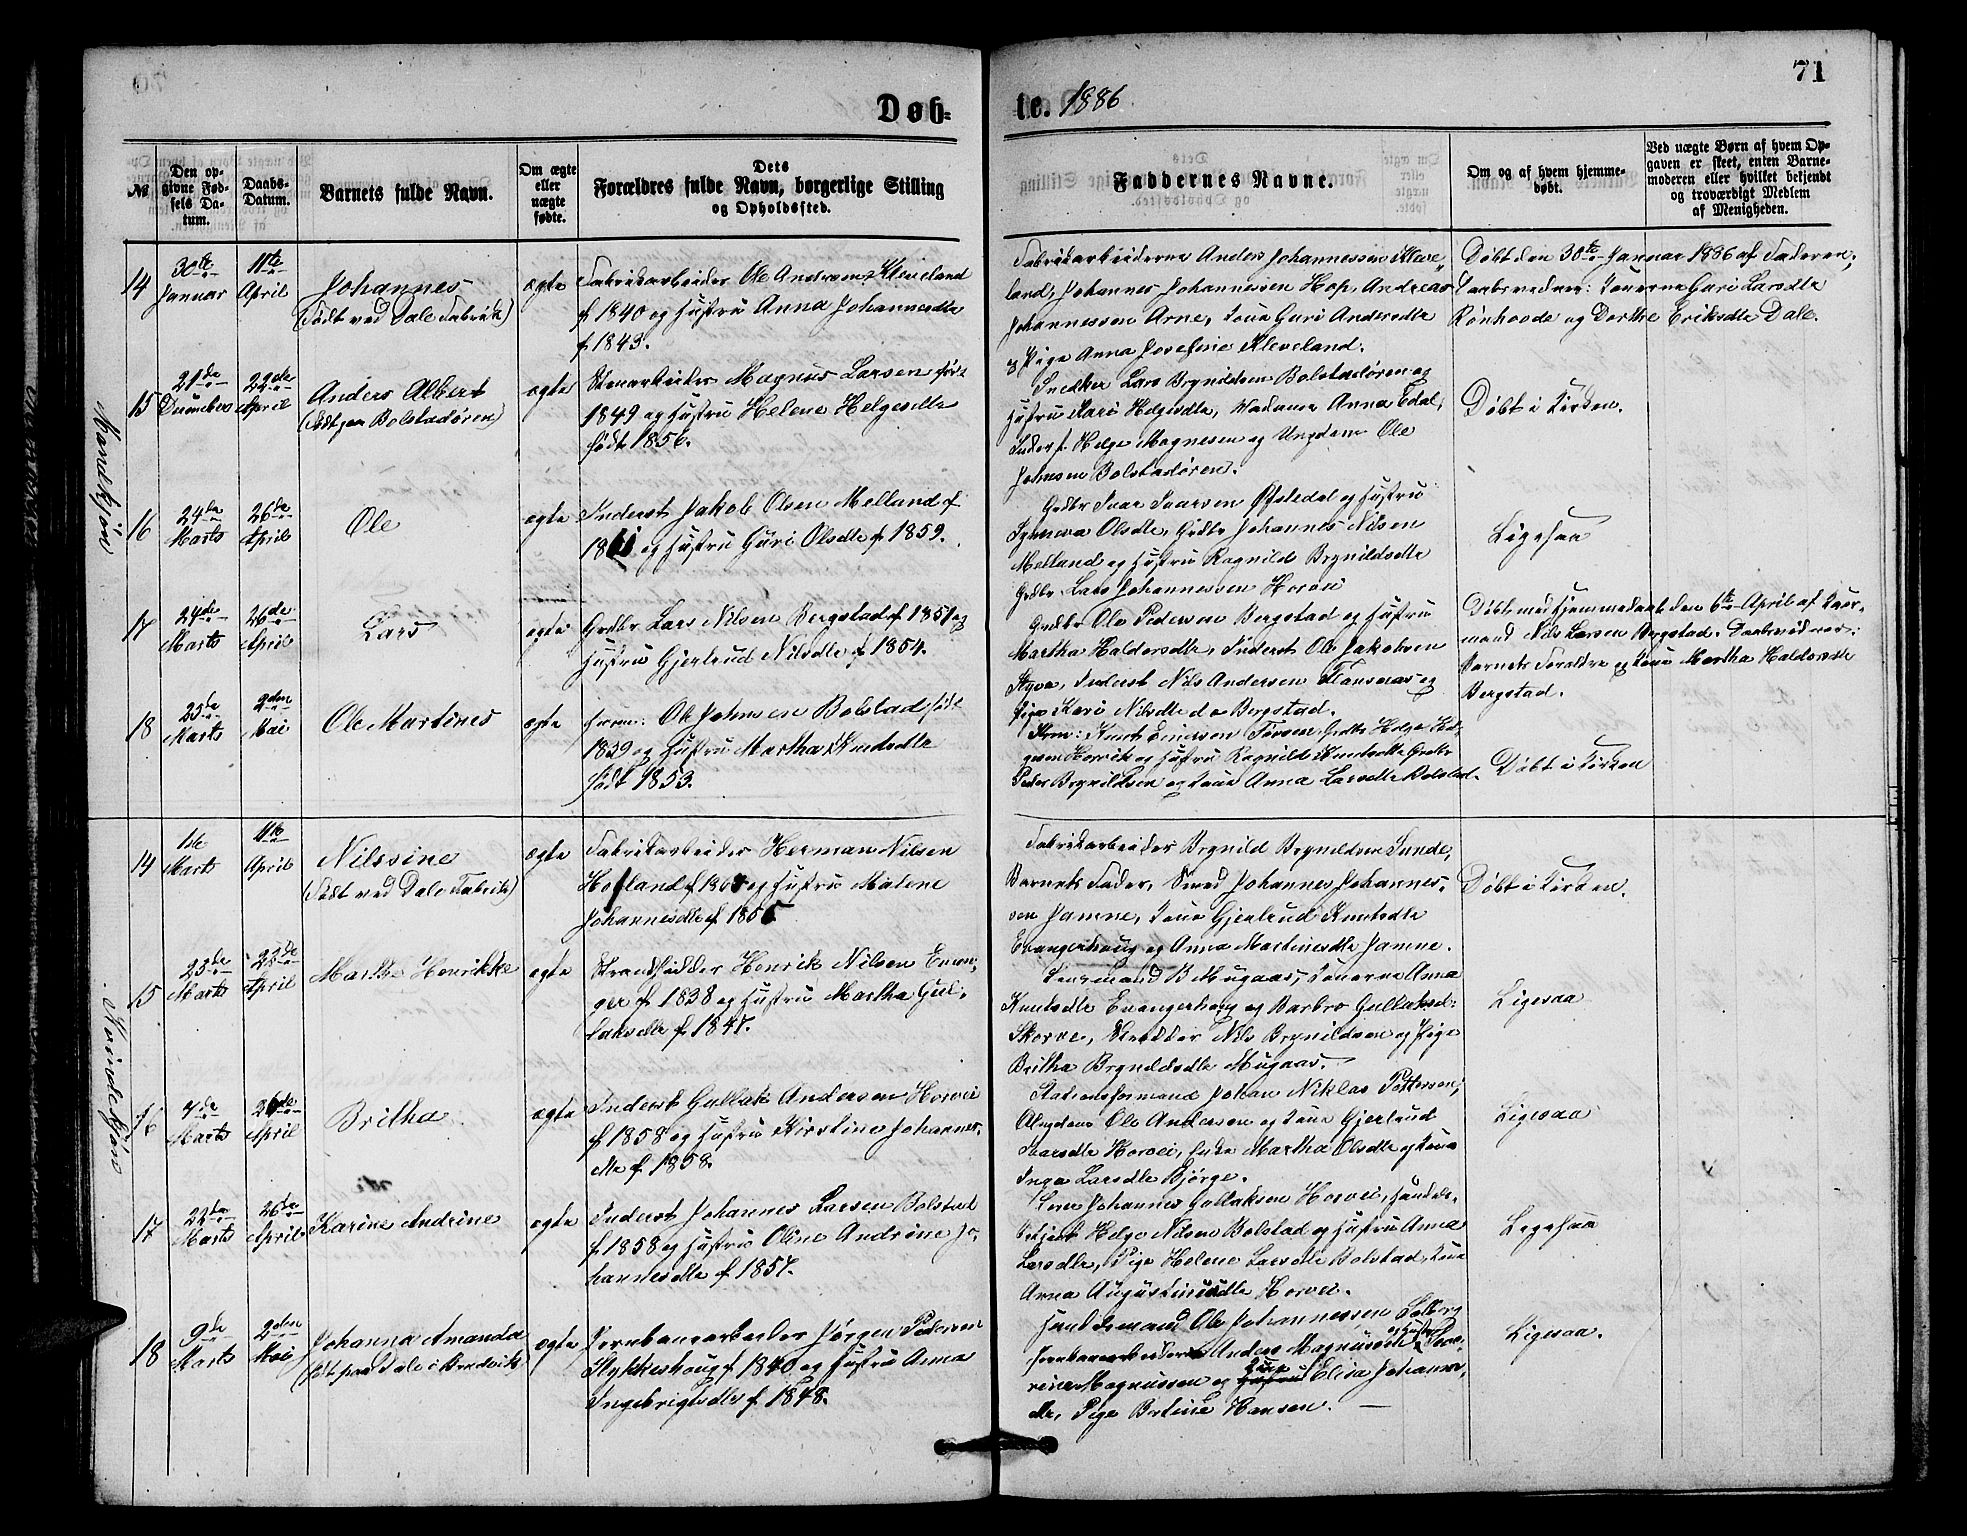 71
Døb=
te. 1886.
№
Den opgivne Fødsels Datum.
Daabs-Datum.
Barnets fulde Navn.
Om ægte eller uægte fødte.
Dets Forældres fulde Navn, borgerlige Stilling og Opholdssted.
Faddernes Navne.
Om og af hvem hjemmedøbt.
Ved uægte Børn af hvem Opgaven er skeet, enten Barnemoderen eller hvilket bekjendt og troværdigt Medlem af Menigheden.
Mandkjøn
14 30te Januar 11te April Johannes (Født ved Dale Fabrik) ægte
Fabrikarbeider Ole Andersen Kleveland
f. 1840 og Hustru Anna Johannesdtr
f. 1843.
Fabrikarbeiderne Anders Johannessen Kleve-
land, Johannes Johannessen Hop, Andreas
Johannessen Arne, Kone Guri Andersdtr
og Pige Anna Josefine Kleveland.
Døbt den 30te Januar 1886 af Faderen;
Daabsvidner: Konerne Guri Larsdtr
Rønhovde og Dorthe Eriksdtr Dale.
15 21de December 22de April Anders Albert (Født paa Bolstadøren) ægte
Stenarbeider Magnus Larsen født
1849 og Hustru Helene Helgesdtr
født 1856.
Snedker Lars Brynildsen Bolstadøren og
Hustru Kari Helgesdtr, Madame Anna Edal,
Inderst Helge Magnesen og Ungdom Ole
Johnsen Bolstadøren.
Døbt i Kirken.
16 24de Marts 26de April Ole ægte
Inderst Jakob Olsen Melland f.
1861 og Hustru Guri Olsdtr f. 1859.
Grdbr Ivar Ivarsen Øfstedal og Hustru
Synneva Olsdtr, Grdbr Johannes Nilsen
Melland og Hustru Ragnild Brynildsdtr
Grdbr Lars Johannessen Horvei
Ligesaa
17 24de Marts 26de April Lars ægte
Grdbr Lars Nilsen Bergstad f. 1851 og
Hustru Gjertrud Nilsdtr f. 1854.
Grdbr Ole Pedersen Bergstad og Hustru
Martha Haldorsdtr, Inderst Ole Jakobsen
Styve, Inderst Nils Andersen Flansnæs og
Pige Kari Nilsdtr do Bergstad.
Døbt med Hjemmedaab den 6te April af Kaar-
mand Nils Larsen Bergstad. Daabsvidner:
Barnets Forældre og Kone Martha Haldorsdtr
Bergstad.
18 25de Marts 2den Mai Ole Martines ægte
Ole Johnsen Bolstad født
1839 og Hustru Martha Knutsdtr
født 1853.
Knut Ferven Grdbr Helge Hel-
gesen Horveik og Hustru Ragnild Knutsdtr Grdbr
Peder Brynildsen og Kone Anna Larsdtr Bolstad.
Døbt i Kirken
Kvindekjøn
14 1ste Marts 11te April Nilssine (Født ved Dale Fabrik) ægte
Fabrikarbeider Herman Nilsen
Hofland f. og Hustru Malene
Johannesdtr f. 1856
Fabrikarbeider Brynild Brynildsen Sunde,
Barnets Fader, Smed Johannes Johannes-
sen Jamne, Kone Gjertrud Knutsdtr
Evangerhaug og Anna Martinesdtr Jamne.
Døbt i Kirken.
15 23de Marts 22de April Martha Henrikke ægte
Strandsidder Henrik Nilsen Evan-
ger f. 1838 og Hustru Martha Gul-
laksdtr f. 1847.
Lensmand B. Mugaas, Konerne Anna
Knutsdtr Evangerhaug og Barbro Gullaksd:
Skorve, Snedker Nils Brynildsen og Pige
Britha Brynildsdtr Mugaas.
Ligesaa
16 7de Marts 26de April Britha ægte
Inderst Gullak Andersen Horvei
f. 1858 og Hustru Kirstine Johannes-
dtr f. 1858.
Stationsformand Johan Niklas Pettersen,
Ungdom Ole Andersen og Kone Gjertrud
Ivarsdtr Horvei, Enke Martha Olsdtr og Kone
Inga Larsdtr Bjørge.
Ligesaa
17 22de Marts 26de April Karine Andrine ægte
Inderst Johannes Larsen Bolstad
f. 1858 og Hustru Oline Andrine Jo-
hannesdtr f. 1857.
Johannes Gullaksen Horvei, Handels-
betjent Helge Nilsen Bolstad og Hustru Anna
Larsdtr, Pige Helene Larsdtr Bolstad, Kone
Anna Augustinusdtr Horvei.
Ligesaa
18 9de Marts 2den Mai Johanna Amanda (født paa Dale i Bruvik) ægte
Jernbanearbeider Jørgen Pedersen
Stykkeshaug f. 1840 og Hustru Anna
Ingebrigtsdtr f. 1848.
Handelsmand Ole Johannessen Solberg
Jernbanearbeider Anders Magnussen og Hustru Seve-
rine Magnussen og Kone Elisa Johannes-
dtr, Pige Bertine Hansen. —
Ligesaa.